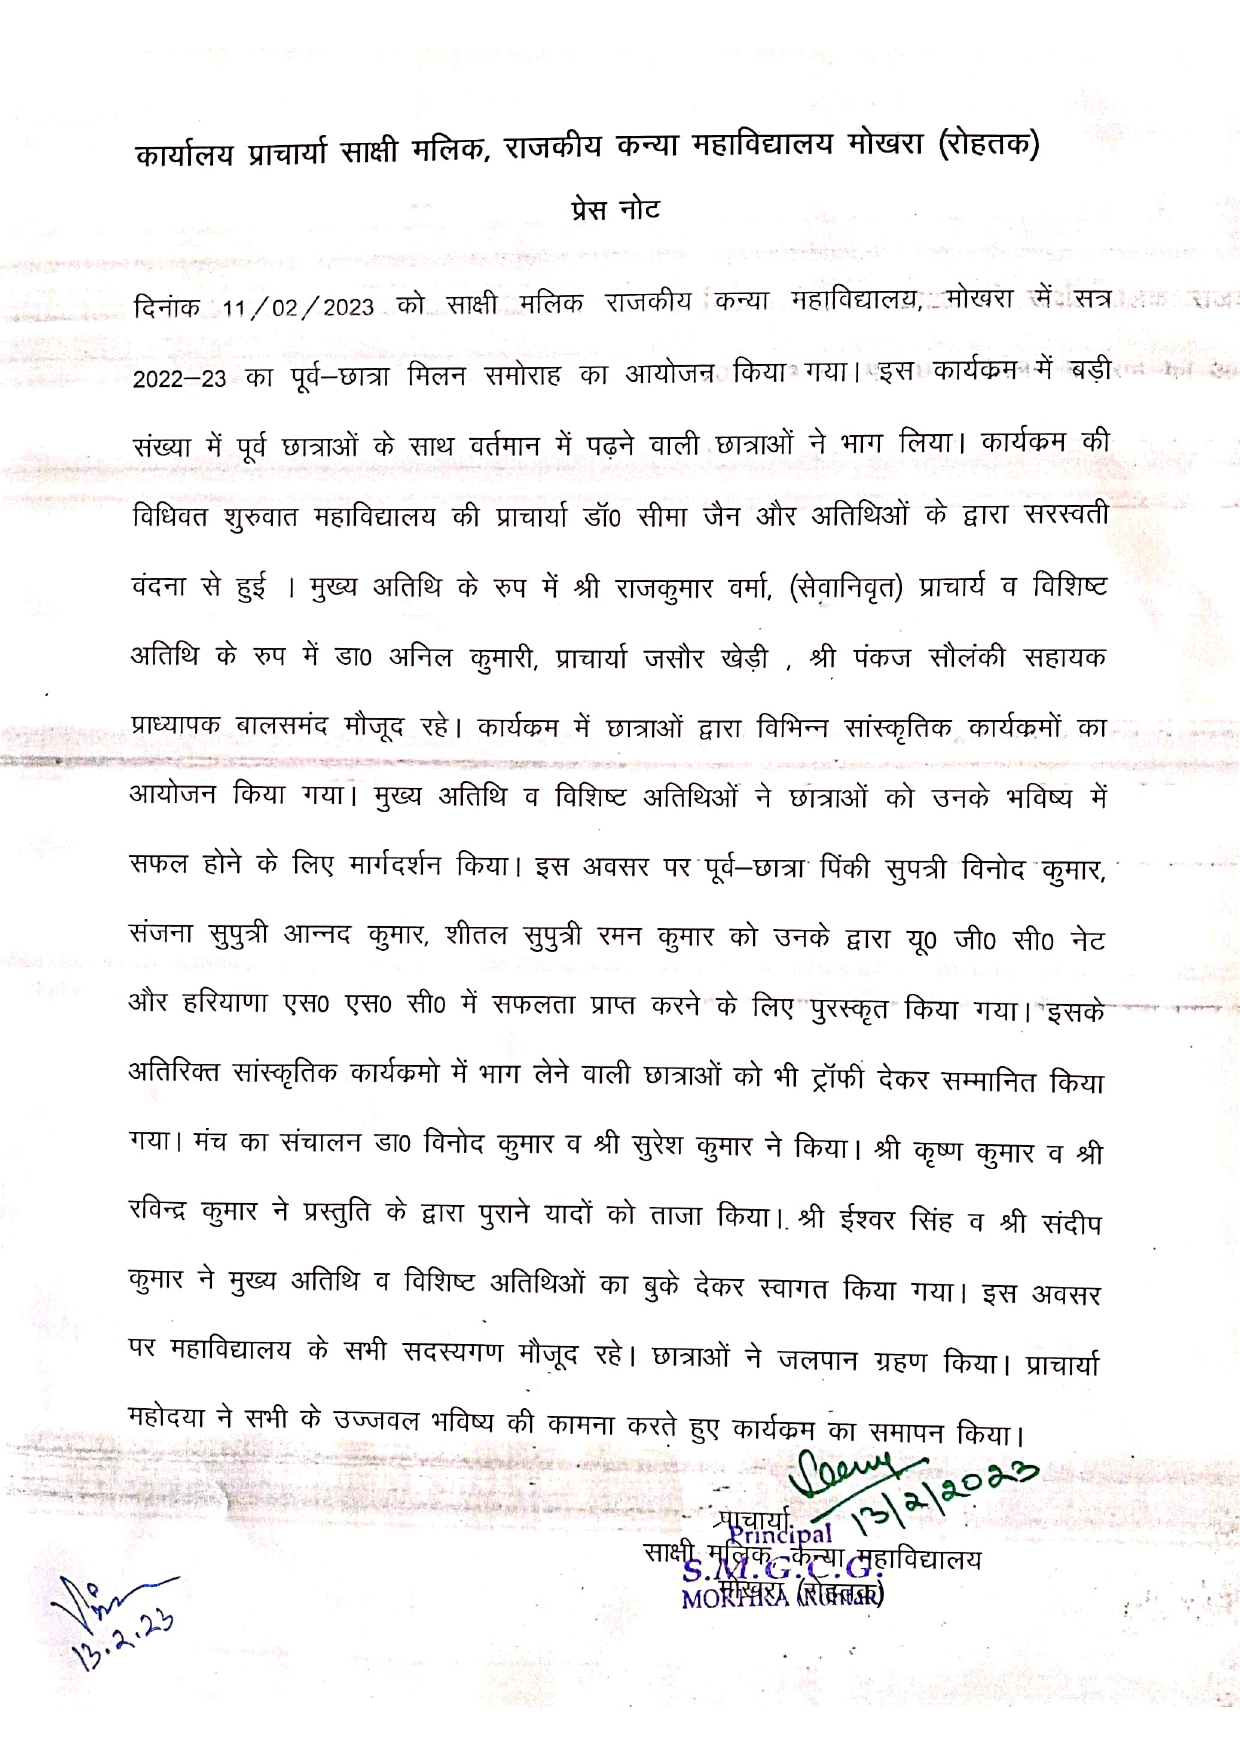 कार्यालय प्राचार्या साक्षी मलिक, राजकीय कन्या महाविद्यालय मोखरा (रोहतक)
प्रेस नोट
दिनांक 11/02/2023 को साक्षी मलिक राजकीय कन्या महाविद्यालय, मोखरा में सत्र
2022–23 का पूर्व–छात्रा मिलन समोराह का आयोजन किया गया। इस कार्यक्रम में बड़ी
संख्या में पूर्व छात्राओं के साथ वर्तमान में पढ़ने वाली छात्राओं ने भाग लिया। कार्यक्रम की
विधिवत शुरुवात महाविद्यालय की प्राचार्या डॉ0 सीमा जैन और अतिथिओं के द्वारा सरस्वती
वंदना से हुई । मुख्य अतिथि के रुप में श्री राजकुमार वर्मा, (सेवानिवृत) प्राचार्य व विशिष्ट
अतिथि के रुप में डा0 अनिल कुमारी, प्राचार्या जसौर खेड़ी , श्री पंकज सौलंकी सहायक
प्राध्यापक बालसमंद मौजूद रहे। कार्यक्रम में छात्राओं द्वारा विभिन्न सांस्कृतिक कार्यक्रमों का
आयोजन किया गया। मुख्य अतिथि व विशिष्ट अतिथिओं ने छात्राओं को उनके भविष्य में
सफल होने के लिए मार्गदर्शन किया। इस अवसर पर पूर्व–छात्रा पिंकी सुपत्री विनोद कुमार,
संजना सुपुत्री आन्नद कुमार, शीतल सुपुत्री रमन कुमार को उनके द्वारा यू0 जी0 सी0 नेट
और हरियाणा एस0 एस0 सी0 में सफलता प्राप्त करने के लिए पुरस्कृत किया गया। इसके
अतिरिक्त सांस्कृतिक कार्यक्रमो में भाग लेने वाली छात्राओं को भी ट्रॉफी देकर सम्मानित किया
गया। मंच का संचालन डा0 विनोद कुमार व श्री सुरेश कुमार ने किया। श्री कृष्ण कुमार व श्री
रविन्द्र कुमार ने प्रस्तुति के द्वारा पुराने यादों को ताजा किया। श्री ईश्वर सिंह व श्री संदीप
कुमार ने मुख्य अतिथि व विशिष्ट अतिथिओं का बुके देकर स्वागत किया गया। इस अवसर
पर महाविद्यालय के सभी सदस्यगण मौजूद रहे। छात्राओं ने जलपान ग्रहण किया। प्राचार्या
महोदया ने सभी के उज्जवल भविष्य की कामना करते हुए कार्यक्रम का समापन किया।
13/2/2023
प्राचार्या
Principal
साक्षी मलिक, कन्या महाविद्यालय
S.M.G.C.G.
मोखरा (रोहतक)
MOKHRA
13.2.23